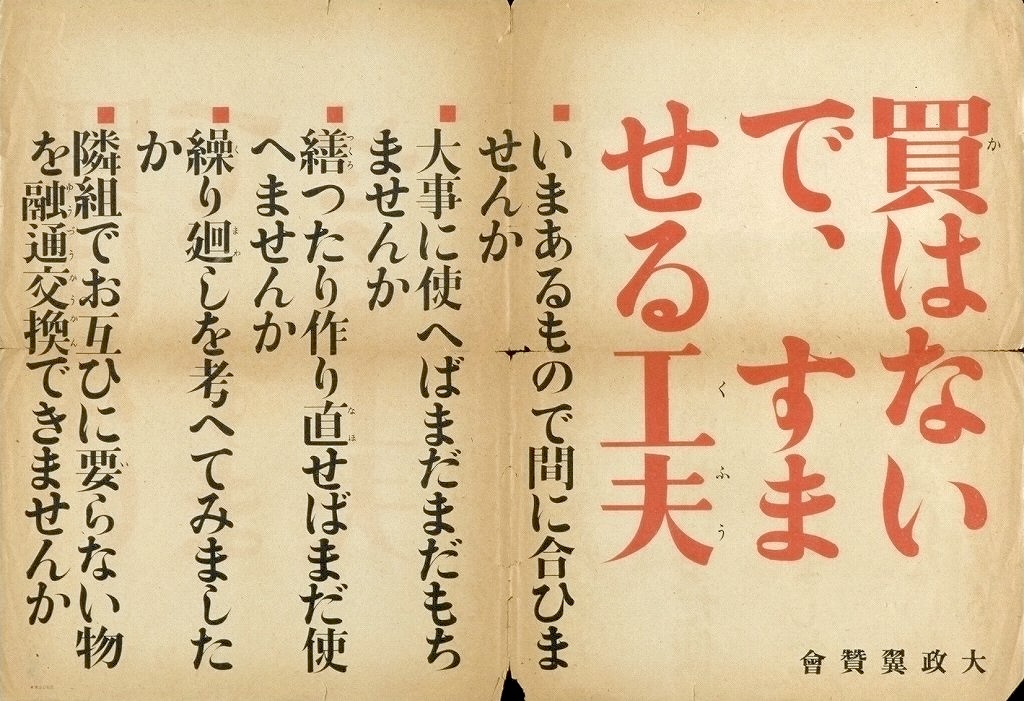 買はない
で、すま
せる工夫
いまあるもので間に合ひま
せんか
大事に使へばまだまだもち
ませんか
繕つたり作り直せばまだ使
へませんか
繰り廻しを考へてみました
か
隣組でお互ひに要らない物
を融通交換できませんか
大政翼贊會